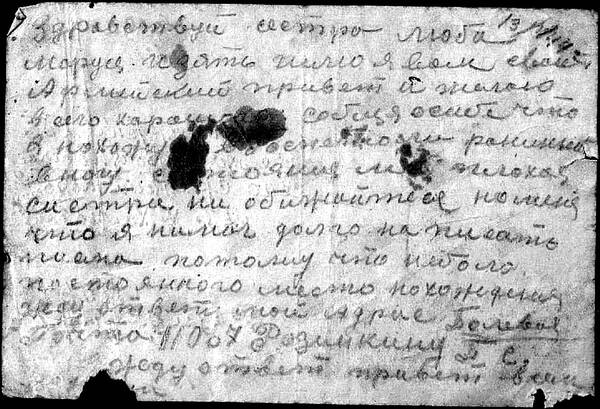 Здравствуй сестра Люба 13
Маруся и зять шлю я вам свой
Армейский привет и желаю
всего харошего собщя о себе что
я нахожусь в госпетоли ранин
в ногу состояния моя плохая
систра ни обижайтесь на меня
что я нимог долго написать
писма потому что небыло
постоянного место нахождения
жду ответ мой адрис Полевая
Почта 11087 Розинкину П С
жду ответ привет всем